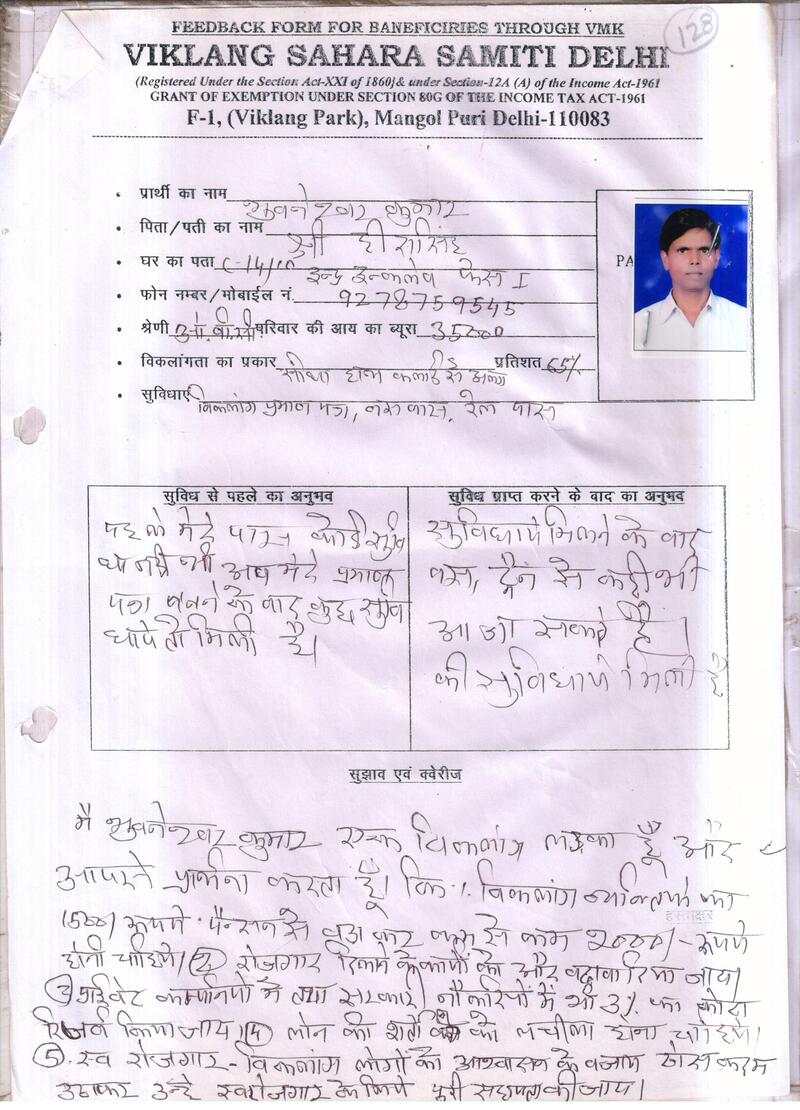 FEEDBACK FORM FOR BANEFICIRIES THROUGH VMK
128
VIKLANG SAHARA SAMITI DELHI
(Registered Under the Section Act-XXI of 1860)& under Section-12A (A) of the Income Act-1961
GRANT OF EXEMPTION UNDER SECTION 80G OF THE INCOME TAX ACT-1961
F-1, (Viklang Park), Mangol Puri Delhi-110083
• प्रार्थी का नाम भुवनेश्वर कुमार
• पिता/पती का नाम श्री हरी सिंह
• घर का पता C-14/10 इन्द्र इन्कलेव फेस I
• फोन नम्बर/मोबाईल नं. 9278759545
• श्रेणी ओ. बी. सी. परिवार की आय का ब्यूरा 35000
• विकलांगता का प्रकार सीधा हाथ कलाई से अलग प्रतिशत 65%
• सुविधाएं विकलांग प्रमाण पत्र, बस पास, रेल पास
PA
सुविध से पहले का अनुभव
पहले मेरे पास कोई सुवि
धा नहीं थी अब मेरे प्रमाण
पत्र बनने के बाद कुछ सुवि
धाये तो मिली है।
सुविध प्राप्त करने के बाद का अनुभव
सुविधाये मिलने के बाद
बस, ट्रेन से कही भी
आ जा सकते है।
की सुविधाये मिली है
सुझाव एवं क्वेरीज
मै भुवनेश्वर कुमार एक विकलांग लड़का हूँ और
आपसे प्रार्थना करता हूँ। कि 1. विकलांग व्यक्तियो का
हस्ताक्षर
1500/ रूपये पैन्सन से बड़ा कर कम से कम 2000/- रूपये
होनी चाहिये। (2) रोजगार दिलाने के कार्यो को और बढ़ावा दिया जाय।
(3) प्राईवेट कम्पनियों में तथा सरकारी नौकरियों में भी 3% का कोटा
रिजर्व किया जाय। (4) लोन की शर्तो को लचीला होना चाहिये।
(5). स्व रोजगार - विकलांग लोगो को आश्वासन के बजाय ठोस कदम
उठाकर उन्हे स्वरोजगार के लिये पूरी सहायता की जाय।